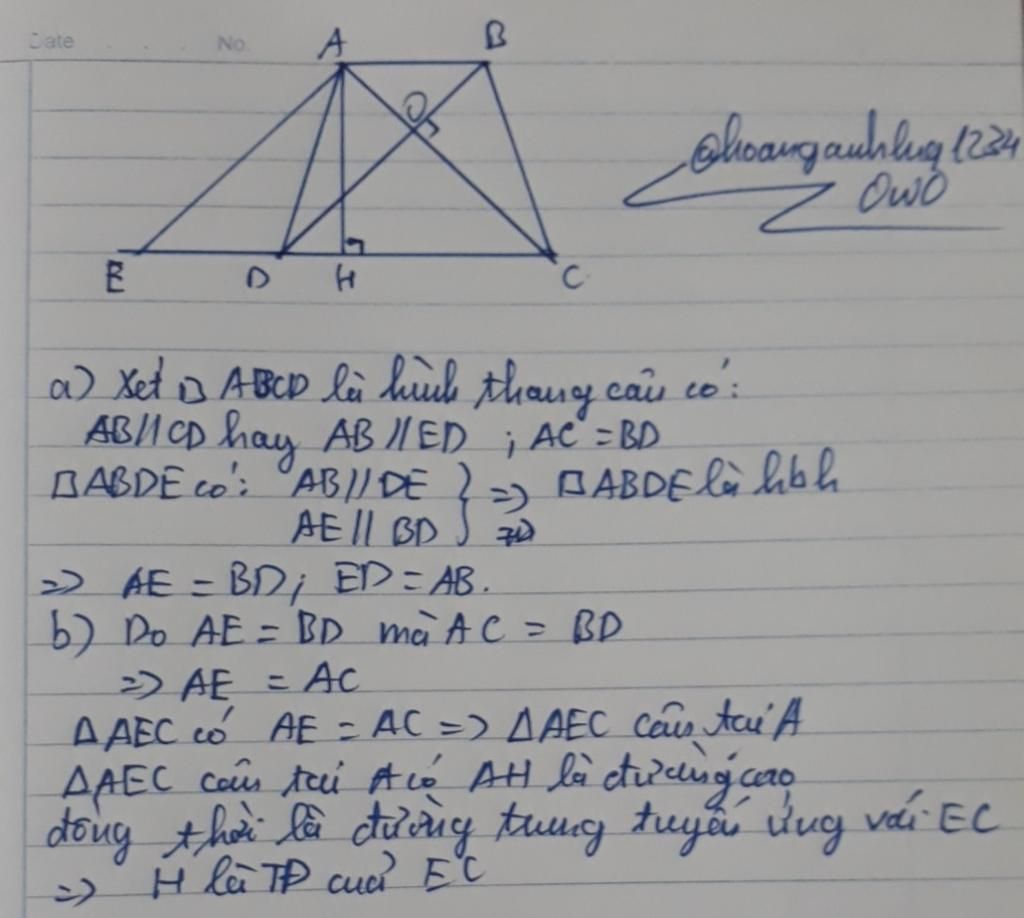 Date No.
A B
O
@hoanganhlug1234
OwO
E D H C
a) Xét ▱ ABCD là hình thang cân có:
AB//CD hay AB//ED ; AC = BD
▱ABDE có: AB//DE } => ▱ABDE là hbh
AE//BD
=> AE = BD; ED = AB.
b) Do AE = BD mà AC = BD
=> AE = AC
ΔAEC có AE = AC => ΔAEC cân tại A
ΔAEC cân tại A có AH là đường cao
đồng thời là đường trung tuyến ứng với EC
=> H là TĐ của EC